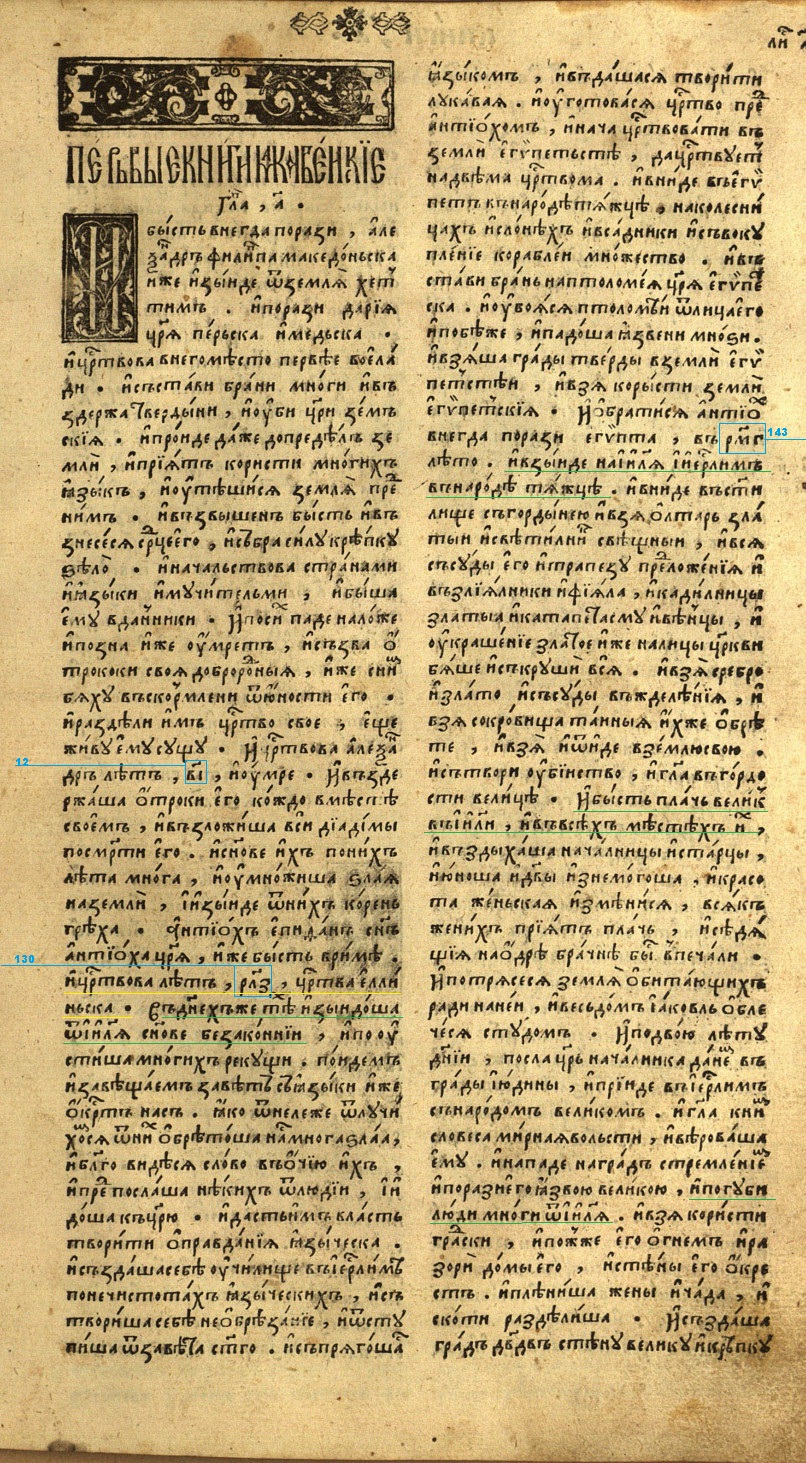 ПЕРЪВЫЕ КНИГИ МАКАВЕЙСКІЕ
Гла҃, а҃ .
И бысть внегда порази , але
ѯа́дръ филипа македоньска
иже изыиде ѿ землѧ хет
тимъ . ипорази дарїѧ
цр҃ѧ перьска имедьска .
ицр҃твова внегомѣсто первѣе воела
ди . исъстави брани многи ивъ
здержа твердыни , иоуби цр҃и зем
скїѧ . ипроиде даже допредѣлъ зе
млѝ , ипрїѧтъ користи многихъ
ѩзыкъ , иоутѣшисѧ землѧ пре
нимъ . ивъзвышенъ бысть ивъ
знесесѧ ср҃цеего , исъбра силу крѣпку
ѕѣло . иначальствова странами
иѩзыки имучительми , ибыша
ему вданники . Ипоси паде наложе
ипозна иже оумретъ , исъзва о
трококи своѧ доброродныѧ , иже сни
бѧху въскормлени ѿюности его .
ираздѣли имъ цр҃тво свое , еще
живу емусущу . И цр҃твова алеѯа
дръ лѣтъ , в҃і , иоумре . Ивъзде
ржаша отроки его кождо вмѣстѣ
своемъ , ивъзложиша вси дїадімы
посмр҃ти его . исн҃ове ихъ понихъ
лѣта многа , иоумножиша ѕлаѧ
наземлѝ , іизыиде ѿнихъ корень
грѣха . антїохъ епиданъ сн҃ъ
антїоха цр҃ѧ , иже бысть вримѣ .
ицр҃твова лѣтъ , рл҃з , цр҃тва елли
ньска . Въднехъже тѣ изыидоша
ѿіи҃лѧ сн҃ове безаконнїи , ипооу
стиша многихъ рекущи . поидемъ
изавѣщаемъ завѣтъ съѩзыки иже
окр҃тъ насъ . ѩко ѿнележе ѿлучи
хосѧ ѿни обрѣтоша на многа ѕлаа ,
иблг҃о видѣсѧ слово въочїю ихъ ,
ипре послаша нѣкихъ ѿлюдїи , іи
доша къцр҃ю . идастьимъ власть
творити оправданїѧ ѩзыческа .
исъздашасебѣ оучилище въіер҃лимѣ
понечистотахъ ѩзыческихъ , исъ
творишасебѣ необрѣзанїе , иѿсту
пиша ѿзавѣта ст҃го . исъпрѧгоша
ѩзыкомъ , ивъдашасѧ творити
лукаваѧ . иоуготовасѧ цр҃тво пре
антїохомъ , инача цр҃твовати въ
земли егѵпетьстѣ , дацр҃твует
надвѣма цр҃твома . ивниде въегѵ
петъ вънародѣ тѧжцѣ , наколесни
цахъ ислонѣхъ ивсадники исъвоку
пленїе кораблеи множество . ивъ
стави брань наптоломеѧ цр҃ѧ егѵпе
ска . иоубоѧсѧ птоломѣи ѿлицаего
ипобѣже , ипадоша ѩзвени мноѕи .
ивзѧша грады тверды вземли егѵ
петстѣи , ивзѧ корысти земли
егѵпетскїѧ . Иобратисѧ антїо
внегда порази егѵпта , въ рм҃г
лѣто . ивзыиде наіи҃лѧ іиер҃лимъ
внародѣ тѧжцѣ . ивниде въст҃и
лище съгордынею ивзѧ олтарь зла
тыи исвѣтилни свѣщныи , ивсѧ
съсуды его итрапезу преложенїѧ и
възлїѧлники ифїѧла , икадилницы
златыа икатапетасму ивѣнцы , и
оукрашенїе златое иже налицы цр҃кви
бѧше исъкруши всѧ . ивзѧ сребро
излато исъсуды въжделѣнїѧ , и
взѧ сокровища таиныѧ ихже обрѣ
те , ивзѧ иѿиде вземлюсвою .
исътвори оубїиство , игл҃а въгордо
сти велицѣ . Ибысть плачь велик
въіи҃ли , ивъвсѣхъ мѣстѣхъ и ,
ивъздыхаша началницы истарцы ,
июноша идв҃ы изнемогоша , икрасо
та женьскаѧ измѣнисѧ , всѧкъ
женихъ прїѧтъ плачь , исѣдѧ
щїѧ наодрѣ брачнѣ бы впечали .
Ипотрѧсесѧ землѧ обитающихъ
ради наней , ивесьдомъ іаковль обле
чесѧ студомъ . Иподвою лѣту
днїи , посла цр҃ь началника дане въ
грады іюдины , иприиде въіер҃лимъ
сънародомъ великомъ . игл҃а кни
словеса мирнаѧвольсти , ивѣроваша
ему . инападе наградъ стремленїе
ипоразиего ѩзвою великою , ипогуби
люди многи ѿіи҃лѧ . ивзѧ користи
градски , ипожже его огнемъ ира
зори домы его , истѣны его окре
стъ . иплѣниша жены ичада , и
скоти раздѣлиша . Исъздаша
градъ дв҃двъ стѣну велику икрѣпку
12
130
143